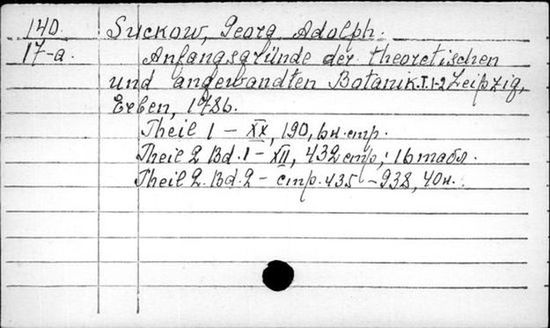 140. Suckow, Georg Adolph.
17-a. Anfangsgründe der theoretischen
und angewandten Botanik. T.1-2 Leipzig,
Erben, 1786.
Theil 1 – XX, 190, 6н. стр.
Theil 2 Bd. 1 – XII, 432 стр.; 16 табл.
Theil 2. Bd. 2 – стр. 435–938, 40н.